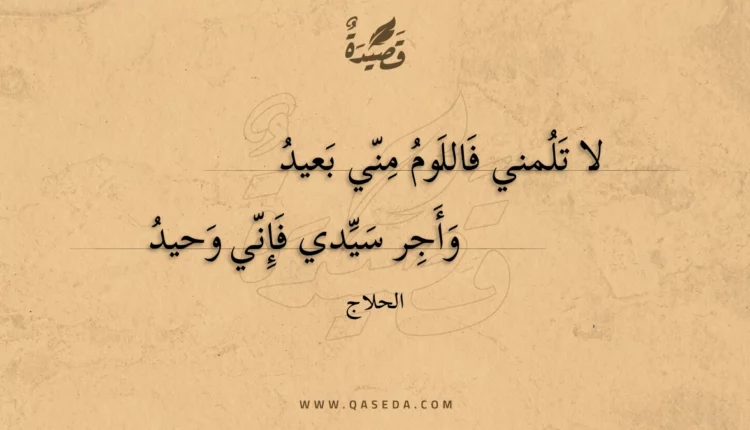 قَصِيْدَةٌ
لا تَلُمني فَاللَومُ مِنّي بَعيدُ
وَأَجِر سَيِّدي فَإِنّي وَحيدُ
الحلاج
WWW.QASEDA.COM